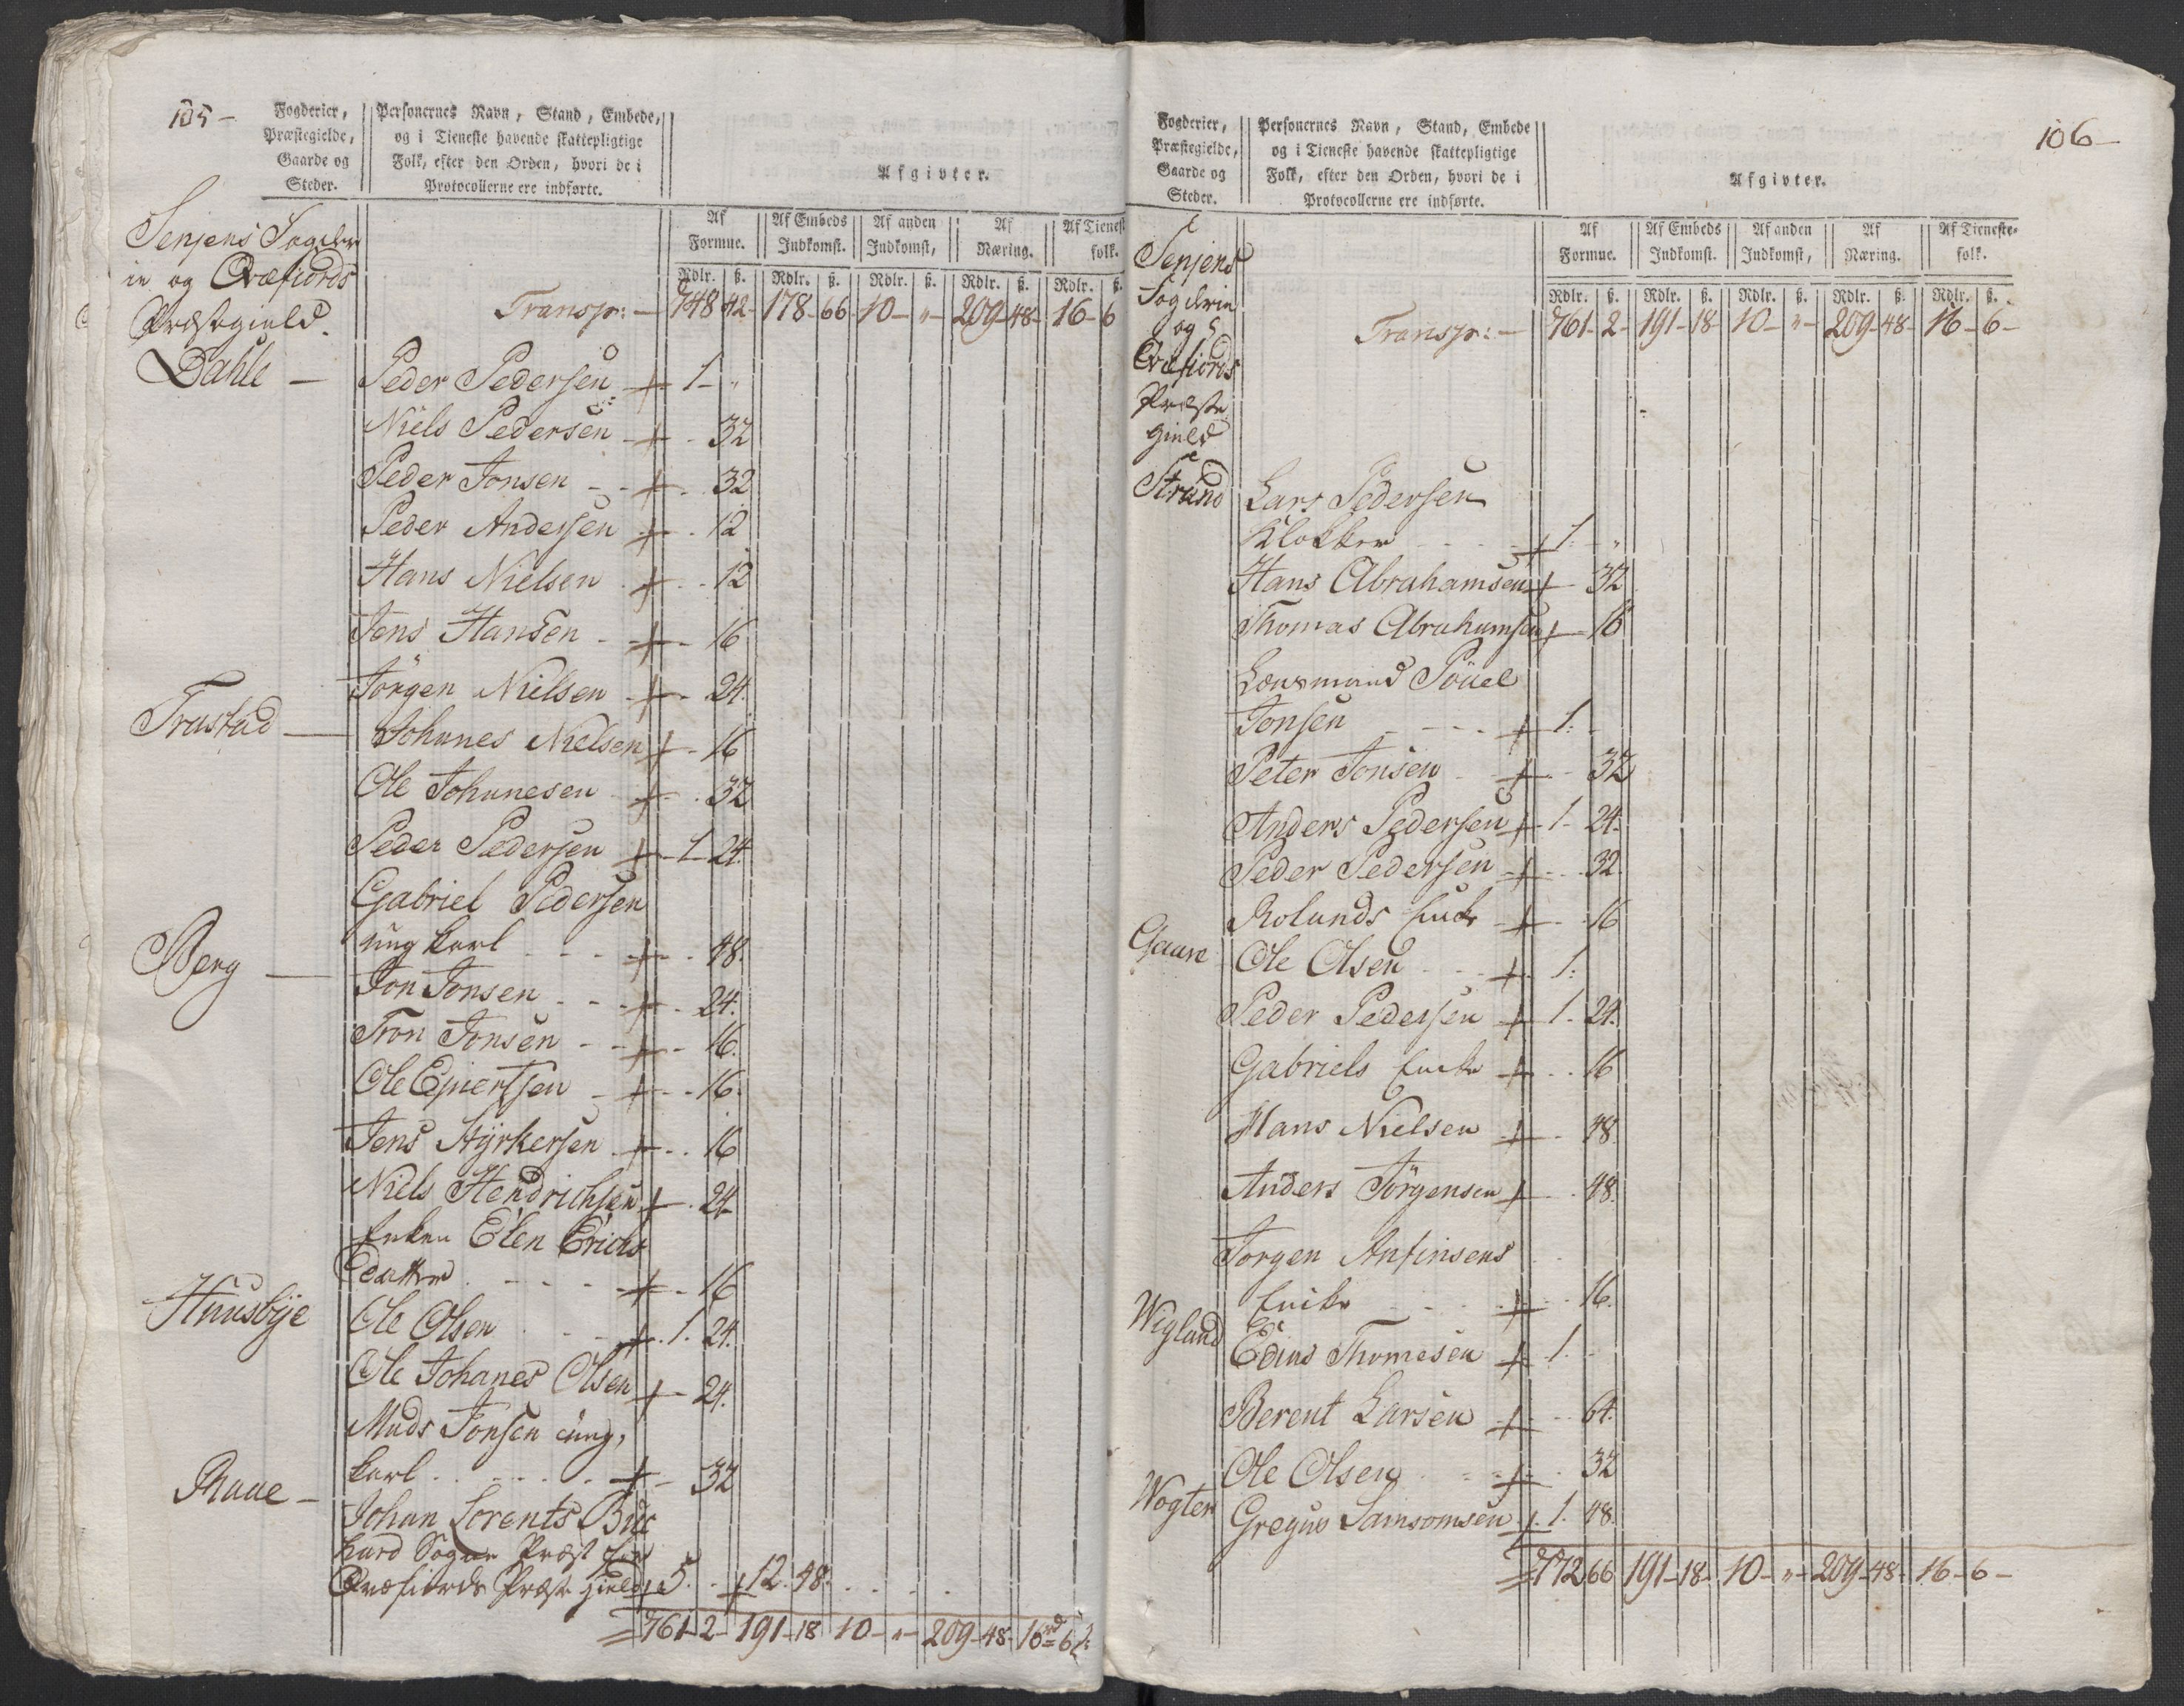 105 -
Fogderier, Præstegielde, Gaarde og Steder.
Personernes Navn, Stand, Embede, og i Tieneste havende skattepligtige Folk, efter den Orden, hvori de i Protocollerne ere indførte.
Afgivter.
Af Formue. Af Embeds Indkomst. Af anden Indkomst, Af Næring. Af Tienest folk.
Rdlr. ß. Rdlr. ß. Rdlr. ß. Rdlr. ß. Rdlr. ß.
Senjens Fogderie og Qvæfiords Præstegield.
Transp: - 748 42 - 178 - 66 10 - " - 209 - 48 - 16 - 6
Dahle - Peder Pedersen + 1 - "
Niels Pedersen + - 32
Peder Jonsen - - + - 32
Peder Andersen + - 12
Hans Nielsen + - 12
Jens Hansen - + - 16
Jörgen Nielsen + - 24.
Trastad - Johanes Nielsen + - 16
Ole Johanesen + - 32
Peder Pedersen + - 1 - 24.
Gabriel Pedersen
ung karl - - - + - 48.
Berg - Jon Jonsen - - + - 24.
Tron Jonsen - - + - 16.
Ole Ejnertsen - + - 16.
Jens Styrkersen + - 16
Niels Hendrichsen + - 24
Enken Elen Erichs
Datter - - - - + - 16
Huusbÿe Ole Olsen - - + 1. 24.
Ole Johanes Olsen + - 24.
Mads Jonsen ung,
karl - - - - + - 32
Raae - Johan Lorents Buc
hard Sogne Præst for
Qvæfiords Præste gield + 5. - + 12. 48. - - - -
761 - 2 - 191 - 18 10 - " - 209 - 48 - 16 rd 6 ß
106 -
Fogderier, Præstegielde, Gaarde og Steder.
Personernes Navn, Stand, Embede og i Tieneste havende skattepligtige Folk, efter den Orden, hvori de i Protocollerne ere indførte.
Afgivter.
Af Formue. Af Embeds Indkomst. Af anden Indkomst, Af Næring. Af Tieneste-folk.
Rdlr. ß. Rdlr. ß. Rdlr. ß. Rdlr. ß. Rdlr. ß.
Senjens
Fogderie
og
Qvæfiords
Præste
gield
Transp: - 761 - 2 - 191 - 18 - 10 - " - 209 - 48 - 16 - 6 -
Strand Lars Pedersen
Klokker - - - + 1. - "
Hans Abrahamsen + - 32
Thomas Abrahamsen + - 16
Lensmand Pouel
Jonsen - - - + 1. -
Peter Jonsen - + - 32
Anders Pedersen + 1 - 24.
Peder Pedersen + - 32.
Rolands Enke + - 16
Gaare Ole Olsen - - + 1.
Peder Pedersen + 1 - 24.
Gabriels Enke + - 16
Hans Nielsen + - 48.
Anders Jörgensen + - 48.
Jorgen Anfinsens
Enke - - - + - 16.
Wigland Edius Thomesen + 1. -
Berent Larsen + - 64.
Ole Olsen - - + - 32
Wogter Gregus Samsomsen + 1. 48.
772 66 191 - 18 - 10 - " - 209 - 48 - 16 - 6 -